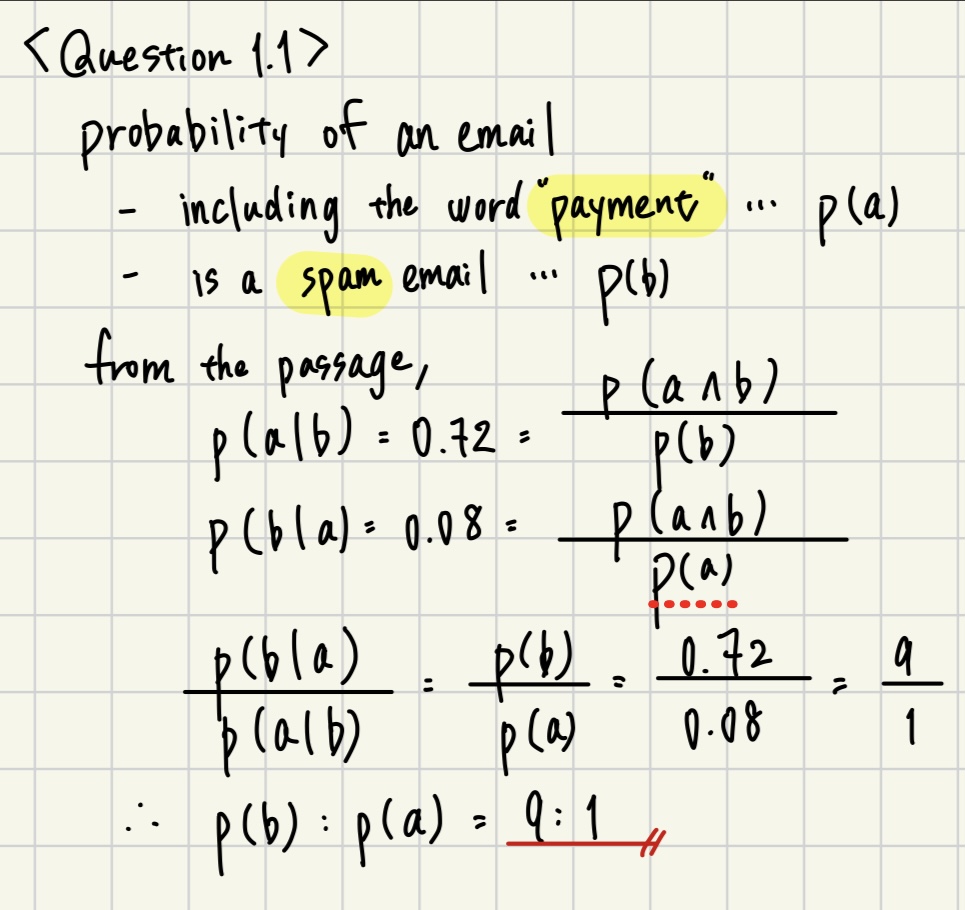 <Question 1.1>
probability of an email
- including the word "payment" ... p(a)
- is a spam email ... p(b)
from the passage,
p(a|b) = 0.72 = p(a∩b) / p(b)
p(b|a) = 0.08 = p(a∩b) / p(a)
p(b|a) / p(a|b) = p(b) / p(a) = 0.72 / 0.08 = 9 / 1
∴ p(b) : p(a) = 9 : 1